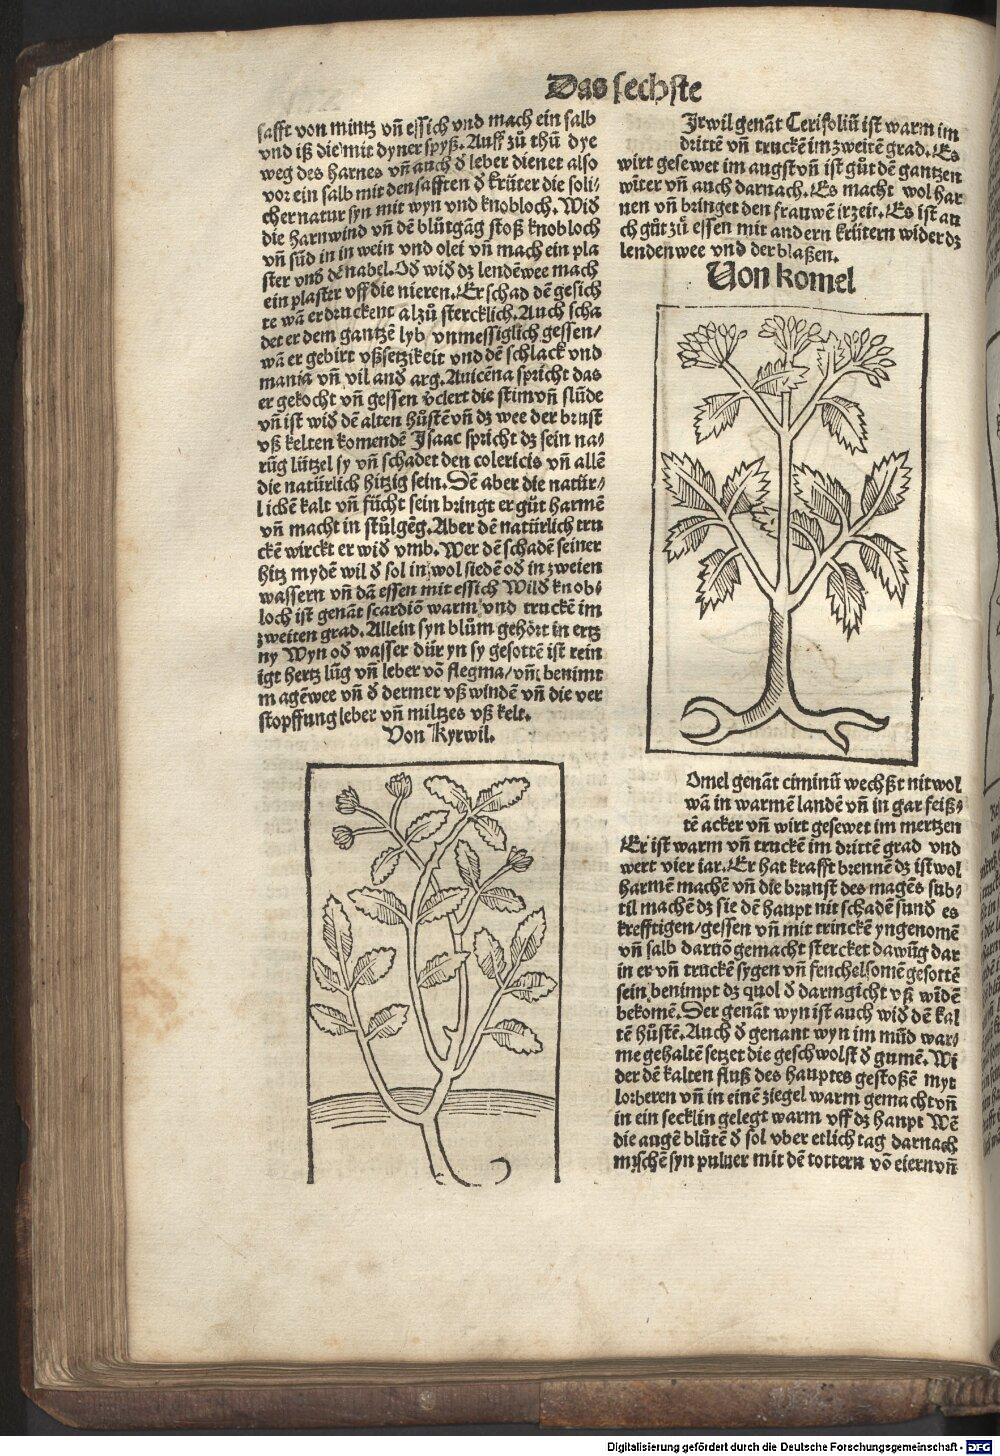 Das sechste
safft von mintz vñ essich vnd mach ein salb
vnd iß die mit dyner spyß. Auff zů thů dye
weg des harnes vñ auch d̄ leber dienet also
vor ein salb mit den safften d̄ krüter die soli-
cher natur syn mit wyn vnd knobloch. Wid̄
die harnwind vñ dē blůtgāg stoß knobloch
vñ süd in in wein vnd olei vñ mach ein pla
ster vnd̄ dē nabel. Od̄ wid̄ dz lendēwee mach
ein plaster vff die nieren. Er schad dē gesich
te wā er druckent alzů stercklich. Auch scha
det er dem gantzē lyb vnmessiglich gessen/
wā er gebirt vßsetzikeit vnd dē schlack vnd
mania vñ vil and̄ arg. Auicēna spricht das
er gekocht vñ gessen v̄clert die stim vñ slūde
vñ ist wid̄ dē alten hůstē vñ dz wee der brust
vß kelten komendē Isaac spricht dz sein na-
rūg lützel sy vñ schadet den colericis vñ allē
die natürlich hitzig sein. Dē aber die natür-
lichē kalt vñ fücht sein bringt er gůt harmē
vñ macht in stůlgēg. Aber dē natürlich tru
ckē wirckt er wid̄ vmb. Wer dē schadē seiner
hitz mydē wil d̄ sol in wol siedē od̄ in zweien
wassern vñ dā essen mit essich Wild knob-
loch ist genāt scardiō warm vnd truckē im
zweiten grad. Allein syn blům gehört in ertz
ny Wyn od̄ wasser dür yn sy gesottē ist rein
igt hertz lūg vñ leber vō flegma/ vñ benimt
magēwee vñ d̄ dermer vß windē vñ die ver
stopffung leber vñ miltzes vß kelt.
Von Kyrwil.
Irwil genāt Cerifoliū ist warm im
drittē vñ truckē im zweitē grad. Es
wirt gesewet im augst vñ ist gůt dē gantzen
wīter vñ auch darnach. Es macht wol har
nen vñ bringet den frauwē ir zeit. Es ist au
ch gůt zů essen mit andern krütern wider dz
lendenwee vnd der blaßen.
Von komel
Omel genāt ciminū wechßt nit wol
wā in warmē landē vñ in gar feiß-
tē acker vñ wirt gesewet im mertzen
Er ist warm vñ truckē im drittē grad vnd
wert vier iar. Er hat krafft brennē dz ist wol
harmē machē vñ die brunst des magēs sub-
til machē dz sie dē haupt nit schadē sund̄ es
krefftigen/ gessen vñ mit trinckē yngenomē
vñ salb daruō gemacht stercket dawūg dar
in er vñ truckē fygen vñ fenchelsomē gesottē
sein benimpt dz quol d̄ darmgicht vß wīdē
bekomē. Der genāt wyn ist auch wid̄ dē kal
tē hůstē. Auch d̄ genant wyn im mūd war-
me gehaltē setzet die geschwolst d̄ gumē. Wi
der dē kalten fluß des hauptes gestoßē myt
lorberen vñ in einē ziegel warm gemacht vñ
in ein secklin gelegt warm vff dz haupt Wē
die augē blůtē d̄ sol vber etlich tag darnach
mischē syn puluer mit dē tottern vō eiern vñ
Digitalisierung gefördert durch die Deutsche Forschungsgemeinschaft - DFG